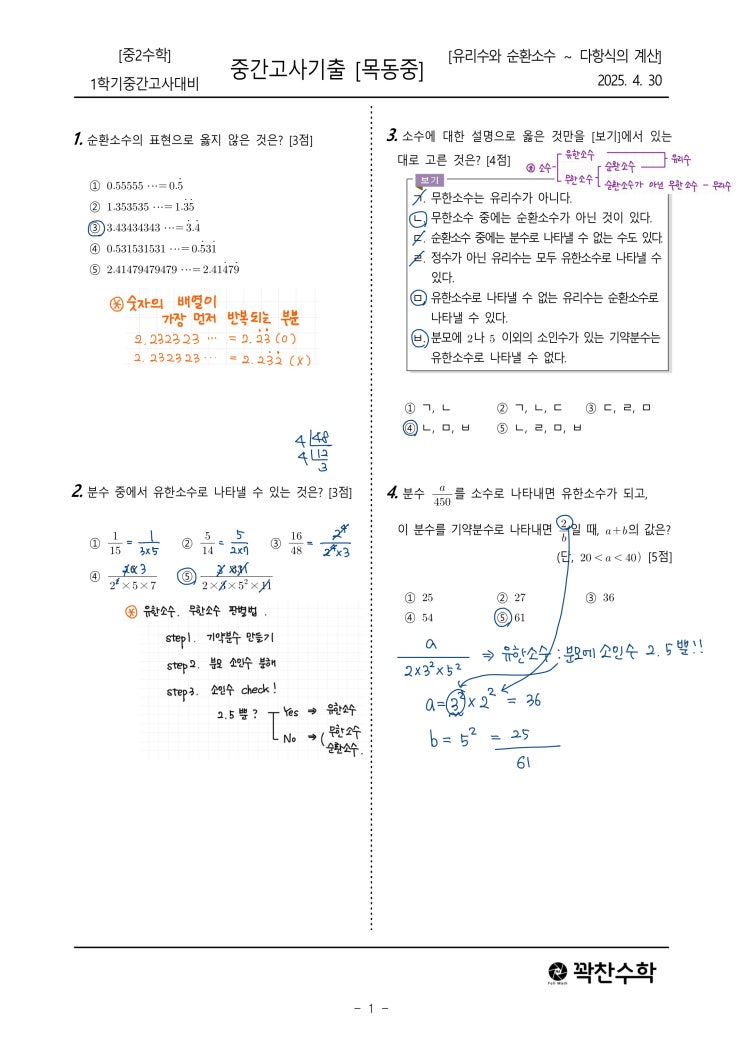 [중2수학]
1학기중간고사대비
중간고사기출 [목동중]
[유리수와 순환소수 ~ 다항식의 계산]
2025. 4. 30
1. 순환소수의 표현으로 옳지 않은 것은? [3점]
① 0.55555 ⋯ = 0.5̇
② 1.353535 ⋯ = 1.3̇5̇
③ 3.43434343 ⋯ = 3̇.4̇
④ 0.531531531 ⋯ = 0.5̇31̇
⑤ 2.41479479479 ⋯ = 2.414̇79̇
※ 숫자의 배열이
가장 먼저 반복되는 부분
2.232323 ⋯ = 2.2̇3̇ (O)
2.232323 ⋯ = 2.23̇2̇ (X)
4 48
4 12
3
2. 분수 중에서 유한소수로 나타낼 수 있는 것은? [3점]
① 1/15 = 1/3×5 ② 5/14 = 5/2×7 ③ 16/48 = 2⁴/2⁴×3
④ 3/2²×5×7
⑤ 2×3×5²×11
※ 유한소수. 무한소수 판별법.
step1. 기약분수 만들기
step2. 분모 소인수 분해
step3. 소인수 check!
2.5뿐? Yes ⇒ 유한소수
No → (무한소수
순환소수.
3. 소수에 대한 설명으로 옳은 것만을 [보기]에서 있는
대로 고른 것은? [4점]
※ 소수 유한소수 유리수
무한소수 순환소수
순환소수가 아닌 무한소수 - 무리수
보기
ㄱ. 무한소수는 유리수가 아니다.
ㄴ. 무한소수 중에는 순환소수가 아닌 것이 있다.
ㄷ. 순환소수 중에는 분수로 나타낼 수 없는 수도 있다.
ㄹ. 정수가 아닌 유리수는 모두 유한소수로 나타낼 수
있다.
ㅁ. 유한소수로 나타낼 수 없는 유리수는 순환소수로
나타낼 수 있다.
ㅂ. 분모에 2나 5 이외의 소인수가 있는 기약분수는
유한소수로 나타낼 수 없다.
① ㄱ, ㄴ ② ㄱ, ㄴ, ㄷ ③ ㄷ, ㄹ, ㅁ
④ ㄴ, ㅁ, ㅂ ⑤ ㄴ, ㄹ, ㅁ, ㅂ
4. 분수 a/450 를 소수로 나타내면 유한소수가 되고,
이 분수를 기약분수로 나타내면 2/b 일 때, a+b의 값은?
(단, 20 < a < 40) [5점]
① 25 ② 27 ③ 36
④ 54 ⑤ 61
a/2×3²×5² ⇒ 유한소수 : 분모에 소인수 2.5뿐!!
a = 3² × 2² = 36
b = 5² = 25
61
Full Math
꽉찬수학
- 1 -